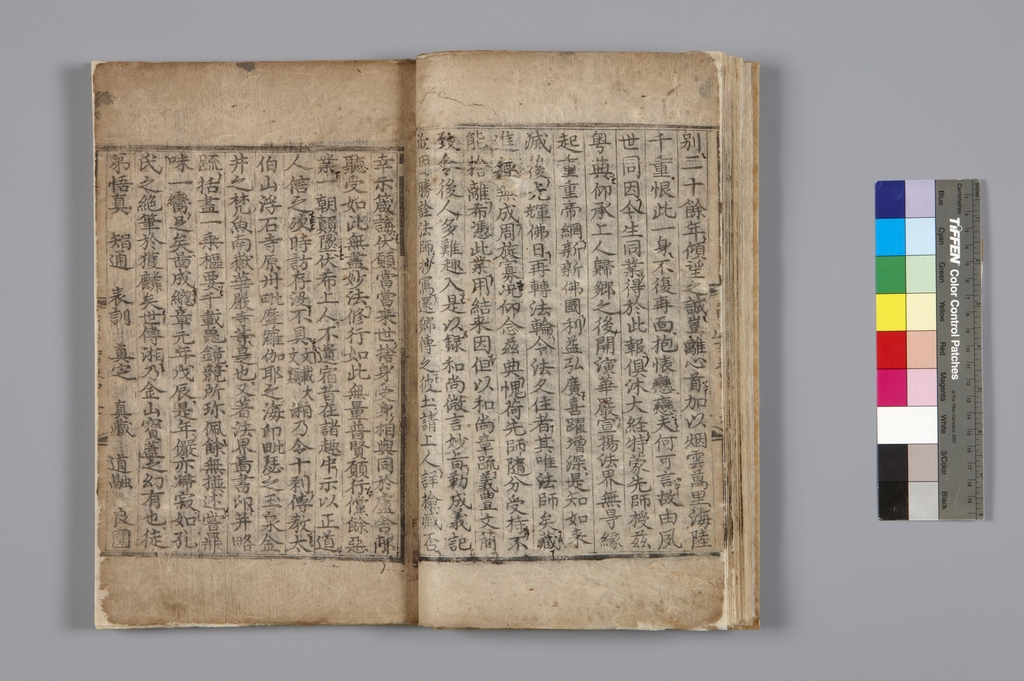 別二十餘年傾望之誠豈離心首加以烟雲萬里海陸
千重恨此一身不復再面抱懷戀戀夫何可言故由夙
世同因今生同業得於此報俱沐大經特蒙先師授玆
粤典仰承上人歸鄉之後開演華嚴宣揚法界無㝵緣
起重重帝網新新佛國利益弘廣喜躍增深是知如來
滅後光輝佛日再轉法輪令法久住者其唯法師矣藏
進趣無成周旋寡況仰念玆典愧荷先師隨分受持不
能捨離希憑此業用結來因但以和尚章疏義豊文簡
致令後人多難趣入是以錄和尚微言妙旨勒成義記
近因勝詮法師抄寫還鄉傳之彼土請上人詳檢臧否
幸示箴誨伏願當當來世捨身受身相與同於盧舍那
聽受如此無盡妙法修行如此無量普賢願行儻餘惡
業一朝顚墜伏希上人不遺宿昔在諸趣中示以正道
人信之次時訪存沒不具 文載大文類 湘乃令十刹傳敎太
伯山浮石寺原州毗摩羅伽耶之海印毗瑟之玉泉金
井之梵魚南嶽華嚴寺等是也又著法界啚書印幷略
疏括盡一乘樞要千載龜鏡競所珍佩餘無撰述甞鼎
味一臠足矣啚成總章元年戊辰是年儼亦歸寂如孔
氏之絶筆於獲麟矣世傳湘乃金山寶蓋之幻有也徒
弟悟眞 智通 表訓 眞定 眞藏 道融 良圓
TIFFEN Color Control Patches
Blue
Cyan
Green
Yellow
Red
Magenta
White
3/Color
Black
Centimetres